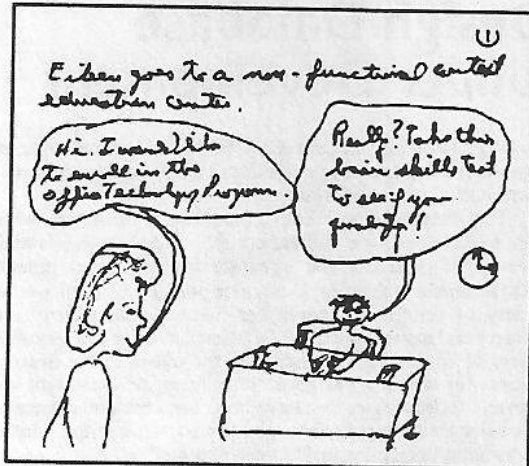 1
Eileen goes to a non-functional context
education center.
Hi. I would like
to enroll in the
Office Technology Program.
Really? Take this
basic skills test
to see if you
qualify!